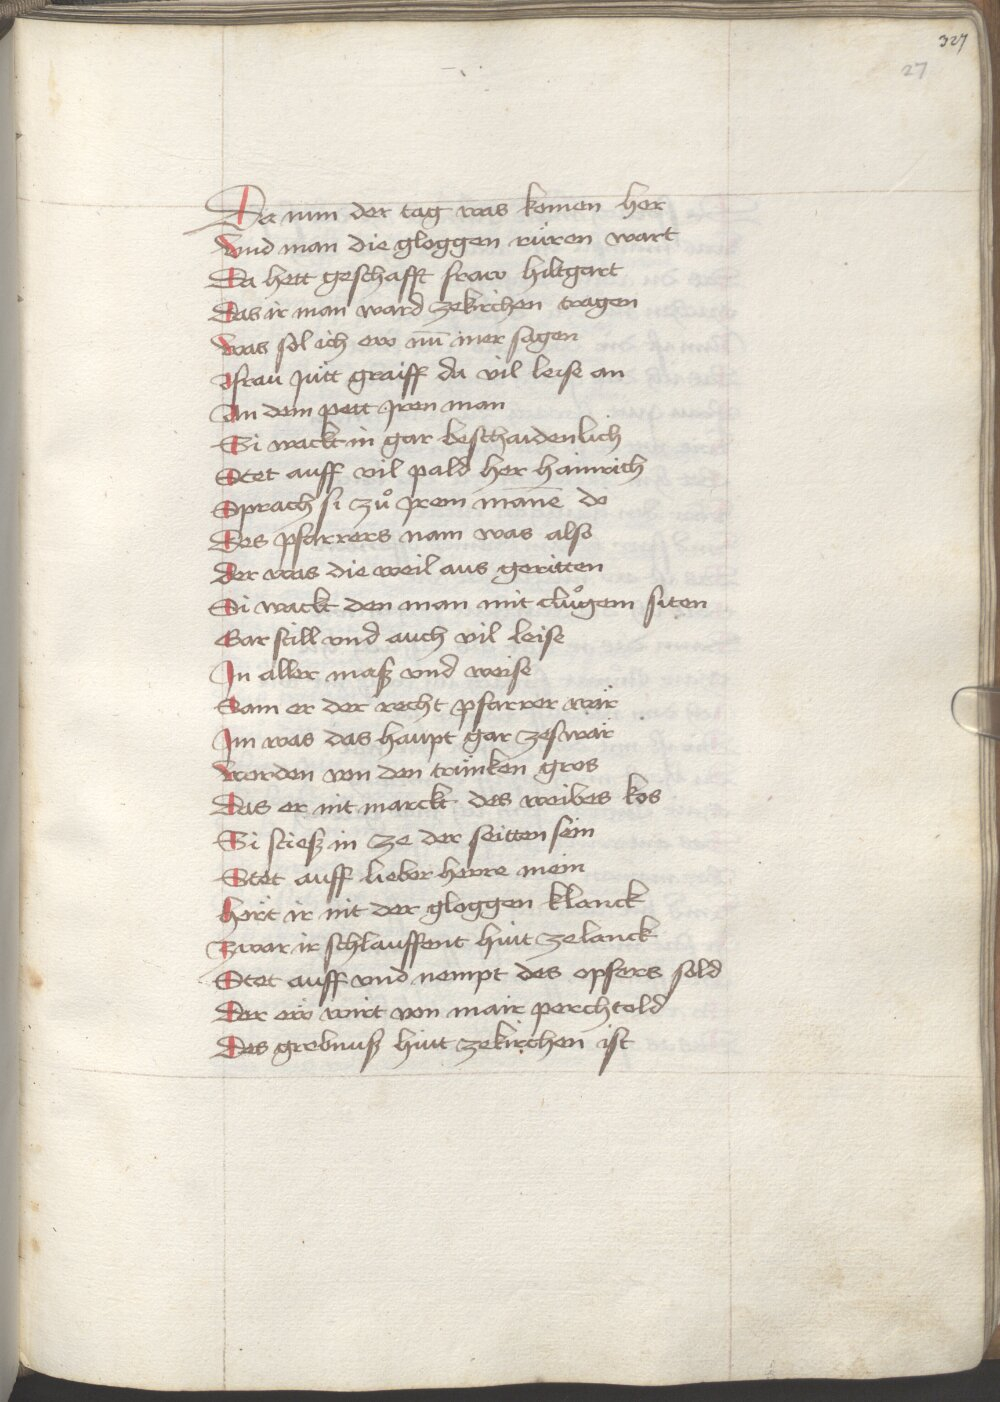 327
27
Da nun der tag was komen her
Vnd man die gloggen rüren wart
Da hett geschafft fraw hiltgart
Das ir man ward zekirchen tragen
Was sol ich ew nu͞ mer sagen
Frau Jütt graiff da vil leise an
An dem pett Jren man
Si wackt in gar beschaidenlich
Stet auff vil pald her hainrich
Sprach si zuͦ Jrem mane͞ do
Des pfarrers nam was also
Der was die weil aus geritten
Si wackt den man mit cluͦgem siten
Gar still vnd auch vil leise
Jn aller masß vnd weise
Sam er der recht pfarrer wär
Jm was das haupt gar zeswär
Worden von den trünken gros
Das er nit marckt des weibes kos
Si stiesß in ze der seitten sein
Stet auff lieber herre mein
Hört ir nit der gloggen klanck
Zwar ir schlauffent hüt zelanck
Stet auff vnd nempt des opfers sold
Der ew wirt von mair perchtold
Des grebnusß hüt zekirchen ist